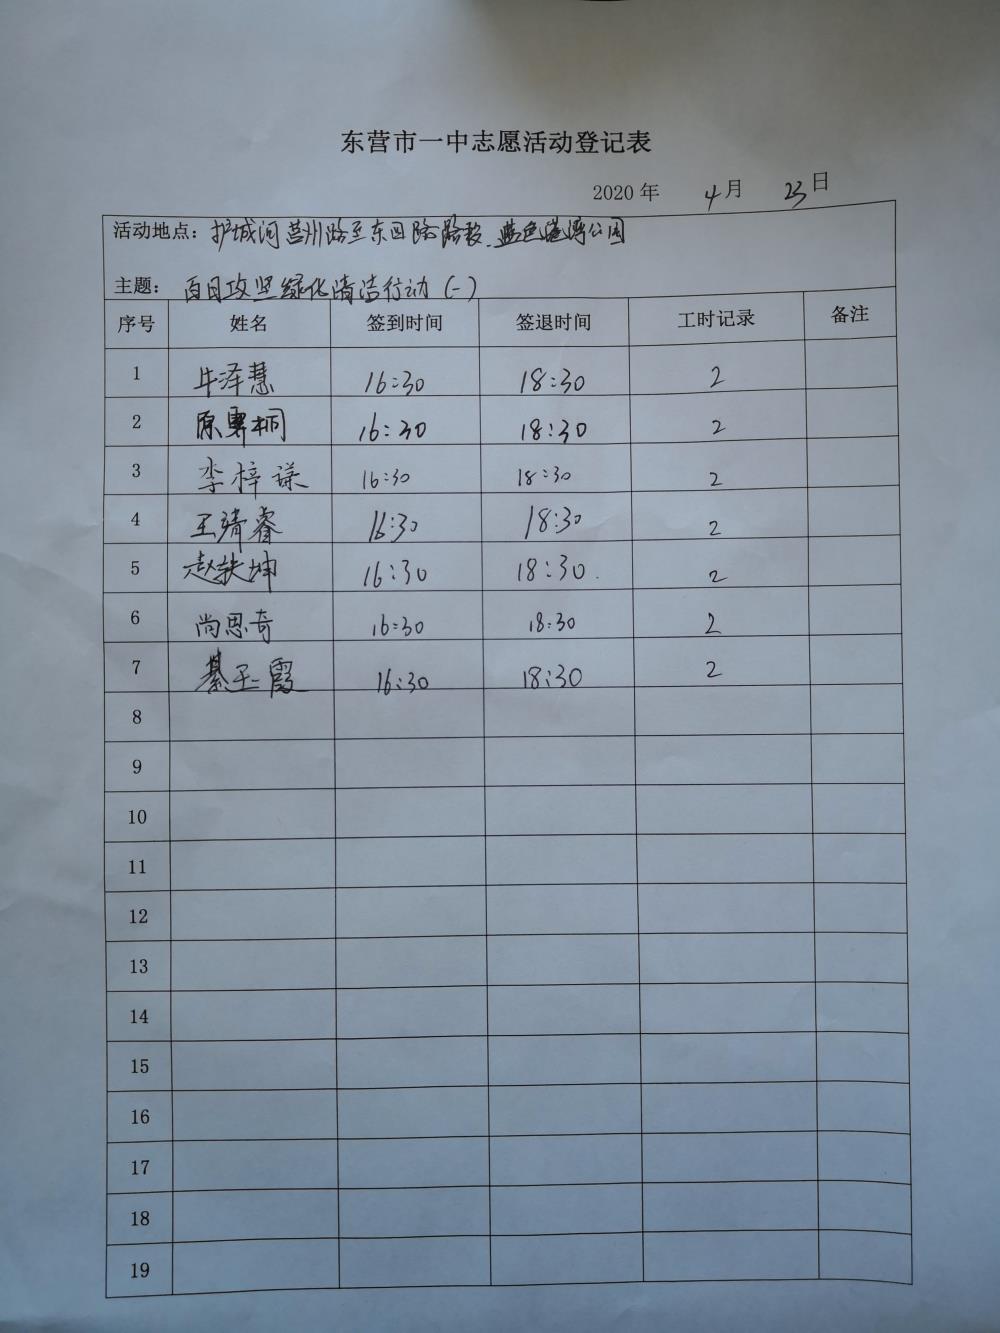 东营市一中志愿活动登记表
2020 年 4 月 23 日
活动地点：护城河莒州路至东四路路段、蓝色港湾公园
主题：百日攻坚绿化清洁行动（一）
序号 姓名 签到时间 签退时间 工时记录 备注
1 牛泽慧 16:30 18:30 2
2 原 桐 16:30 18:30 2
3 李梓谦 16:30 18:30 2
4 王靖睿 16:30 18:30 2
5 赵轶坤 16:30 18:30 2
6 尚思奇 16:30 18:30 2
7 綦玉霞 16:30 18:30 2
8
9
10
11
12
13
14
15
16
17
18
19